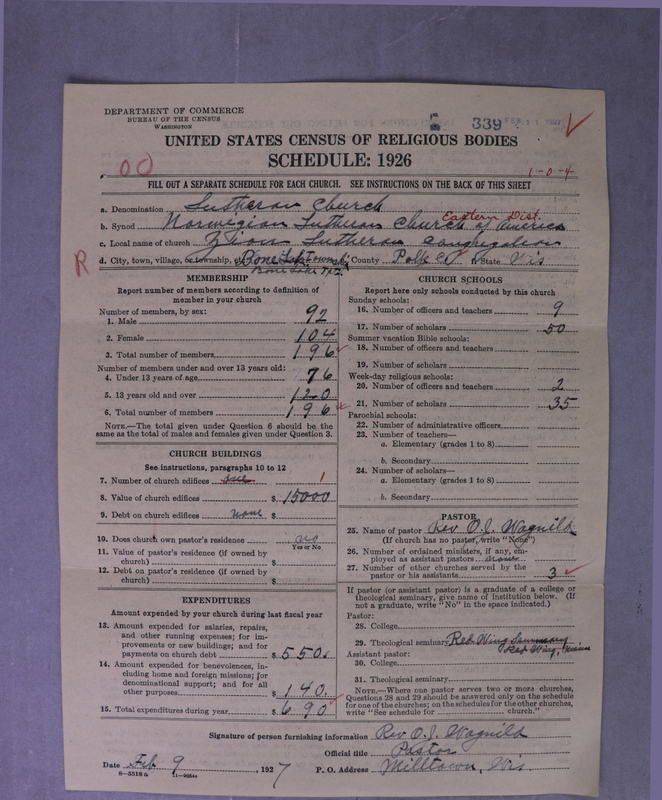 DEPARTMENT OF COMMERCE
BUREAU OF THE CENSUS
WASHINGTON
339 FEB 11 1927
UNITED STATES CENSUS OF RELIGIOUS BODIES
SCHEDULE: 1926
1-0-4
FILL OUT A SEPARATE SCHEDULE FOR EACH CHURCH. SEE INSTRUCTIONS ON THE BACK OF THIS SHEET
a. Denomination Lutheran Church
Eastern Dist.
b. Synod Norwegian Lutheran Church of America
c. Local name of church Zion Lutheran Congregation
d. City, town, village, or township, Bone Lake Township County Polk Co State Wis
R
Bone Lake Tp.
MEMBERSHIP
Report number of members according to definition of
member in your church
Number of members, by sex:
1. Male 92
2. Female 104
3. Total number of members 196
Number of members under and over 13 years old:
4. Under 13 years of age 76
5. 13 years old and over 120
6. Total number of members 196
NOTE.—The total given under Question 6 should be the
same as the total of males and females given under Question 3.
CHURCH BUILDINGS
See instructions, paragraphs 10 to 12
7. Number of church edifices one 1
8. Value of church edifices $ 15000
9. Debt on church edifices none $
10. Does church own pastor's residence no
Yes or No
11. Value of pastor's residence (if owned by
church) $
12. Debt on pastor's residence (if owned by
church) $
EXPENDITURES
Amount expended by your church during last fiscal year
13. Amount expended for salaries, repairs,
and other running expenses; for im-
provements or new buildings; and for
payments on church debt $ 550.
14. Amount expended for benevolences, in-
cluding home and foreign missions; for
denominational support; and for all
other purposes $ 140.
15. Total expenditures during year $ 690
CHURCH SCHOOLS
Report here only schools conducted by this church
Sunday schools:
16. Number of officers and teachers 9
17. Number of scholars 50
Summer vacation Bible schools:
18. Number of officers and teachers
19. Number of scholars
Week-day religious schools:
20. Number of officers and teachers 2
21. Number of scholars 35
Parochial schools:
22. Number of administrative officers
23. Number of teachers—
a. Elementary (grades 1 to 8)
b. Secondary
24. Number of scholars—
a. Elementary (grades 1 to 8)
b. Secondary
PASTOR
25. Name of pastor Rev O.J. Wagnild
(If church has no pastor, write "None")
26. Number of ordained ministers, if any, em-
ployed as assistant pastors none
27. Number of other churches served by the
pastor or his assistants 3
If pastor (or assistant pastor) is a graduate of a college or
theological seminary, give name of institution below. (If
not a graduate, write "No" in the space indicated.)
Pastor:
28. College
29. Theological seminary Red Wing Seminary
Red Wing, Minn
Assistant pastor:
30. College
31. Theological seminary
NOTE.—Where one pastor serves two or more churches,
Questions 28 and 29 should be answered only on the schedule
for one of the churches; on the schedules for the other churches,
write "See schedule for church."
Signature of person furnishing information Rev O.J. Wagnild
Official title Pastor
Date Feb 9, 1927 P. O. Address Milltown, Wis.